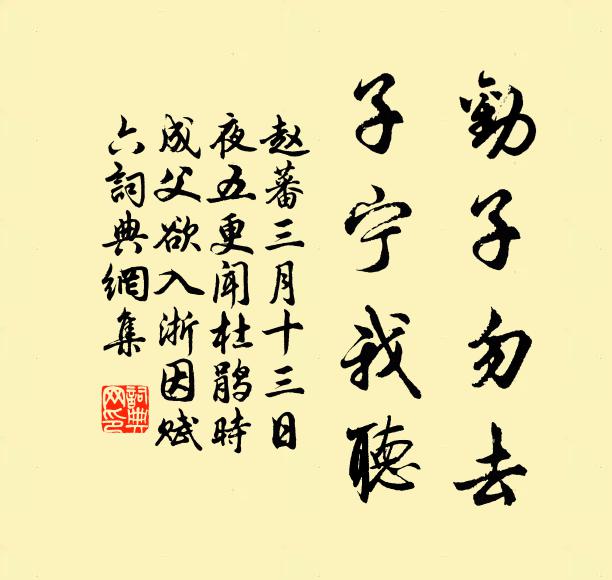 勸子勿去
子宁我聽
赵蕃三月十三日
夜五更闻杜鹃時
成父欲入浙因赋
六詞典網集
詞典
网印